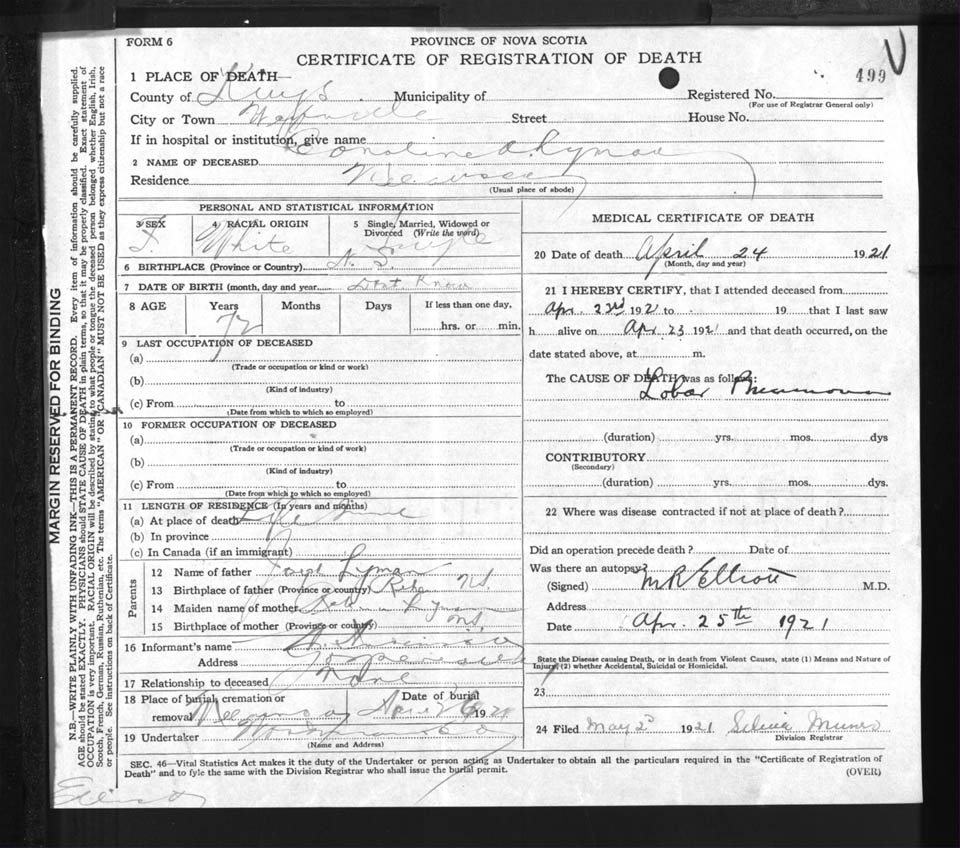 FORM 6
PROVINCE OF NOVA SCOTIA
CERTIFICATE OF REGISTRATION OF DEATH
499
1 PLACE OF DEATH—
County of Kings Municipality of Registered No.
(For use of Registrar General only)
City or Town Wolfville Street House No.
If in hospital or institution, give name
2 NAME OF DECEASED Caroline A.
Residence
(Usual place of abode)
PERSONAL AND STATISTICAL INFORMATION
3 SEX 4 RACIAL ORIGIN 5 Single, Married, Widowed or Divorced (Write the word)
F White Single
6 BIRTHPLACE (Province or Country) N. S.
7 DATE OF BIRTH (month, day and year) Dont Know
8 AGE Years Months Days If less than one day,
72 hrs. or min.
9 LAST OCCUPATION OF DECEASED
(a)
(Trade or occupation or kind or work)
(b)
(Kind of industry)
(c) From to
(Date from which to which so employed)
10 FORMER OCCUPATION OF DECEASED
(a)
(Trade or occupation or kind of work)
(b)
(Kind of industry)
(c) From to
(Date from which to which so employed)
11 LENGTH OF RESIDENCE (In years and months)
(a) At place of death Life time
(b) In province
(c) In Canada (if an immigrant)
Parents
12 Name of father Joseph Lyman
13 Birthplace of father (Province or country) N.S.
14 Maiden name of mother
15 Birthplace of mother (Province or country) N.S.
16 Informant's name
Address
17 Relationship to deceased None
18 Place of burial, cremation or removal Date of burial
April 26 1921
19 Undertaker
(Name and Address)
MEDICAL CERTIFICATE OF DEATH
20 Date of death April 24 1921
(Month, day and year)
21 I HEREBY CERTIFY, that I attended deceased from
Apr. 23rd 1921 to 19 that I last saw
h alive on Apr. 23 1921 and that death occurred, on the
date stated above, at m.
The CAUSE OF DEATH was as follows:
Lobar Pneumonia
(duration) yrs. mos. dys
CONTRIBUTORY
(Secondary)
(duration) yrs. mos. dys.
22 Where was disease contracted if not at place of death?
Did an operation precede death? Date of
Was there an autopsy
(Signed) M R Elliott M.D.
Address
Date Apr. 25th 1921
State the Disease causing Death, or in death from Violent Causes, state (1) Means and Nature of
Injury, (2) whether Accidental, Suicidal or Homicidal.
23
24 Filed May 2d 1921 Munro
Division Registrar
SEC. 46—Vital Statistics Act makes it the duty of the Undertaker or person acting as Undertaker to obtain all the particulars required in the "Certificate of Registration of
Death" and to fyle the same with the Division Registrar who shall issue the burial permit.
(OVER)
MARGIN RESERVED FOR BINDING
N.B.—WRITE PLAINLY WITH UNFADING INK—THIS IS A PERMANENT RECORD. Every item of information should be carefully supplied.
AGE should be stated EXACTLY. PHYSICIANS should STATE CAUSE OF DEATH in plain terms, so that it may be properly classified. Exact statement of
OCCUPATION is very important. RACIAL ORIGIN will be described by stating to what people or tongue the deceased person belonged whether English, Irish,
Scotch, French, German, Russian, Ruthenian, etc. The terms "AMERICAN" OR "CANADIAN" MUST NOT BE USED as they express citizenship but not a race
or people. See instructions on back of Certificate.